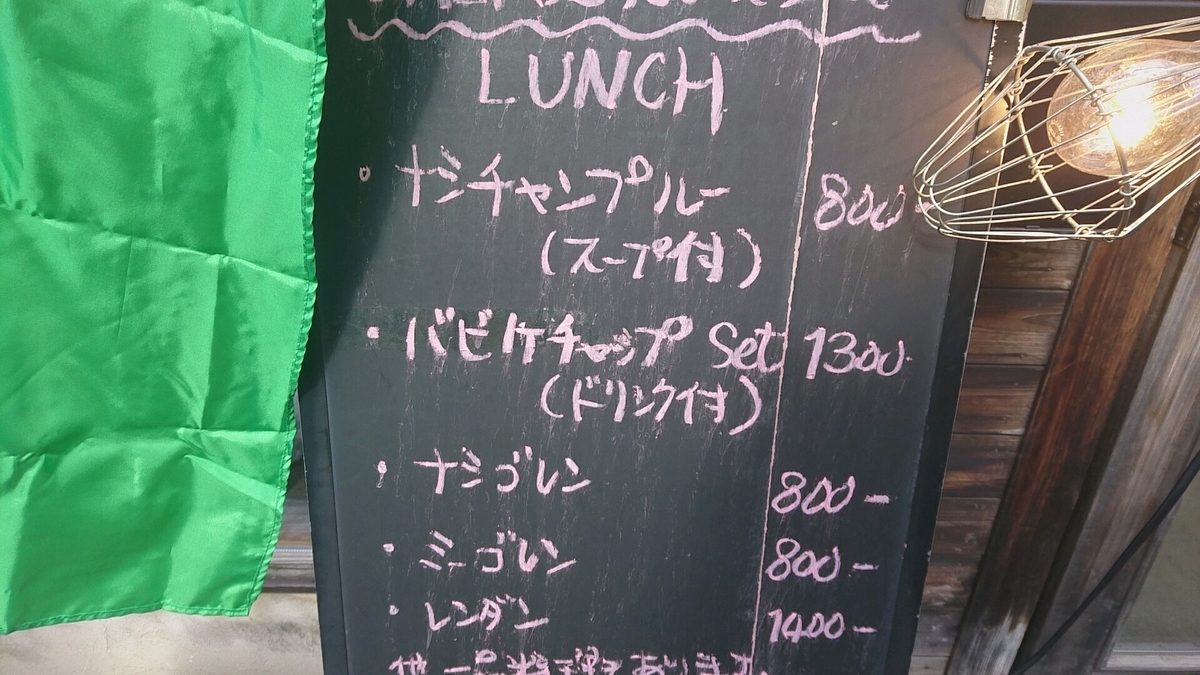 LUNCH
・ナシチャンプルー 800-
(スープ付)
・バビケチャップ Set 1300-
(ドリンク付)
・ナシゴレン 800-
・ミーゴレン 800-
・レンダン 1400-
他一品料理あります。